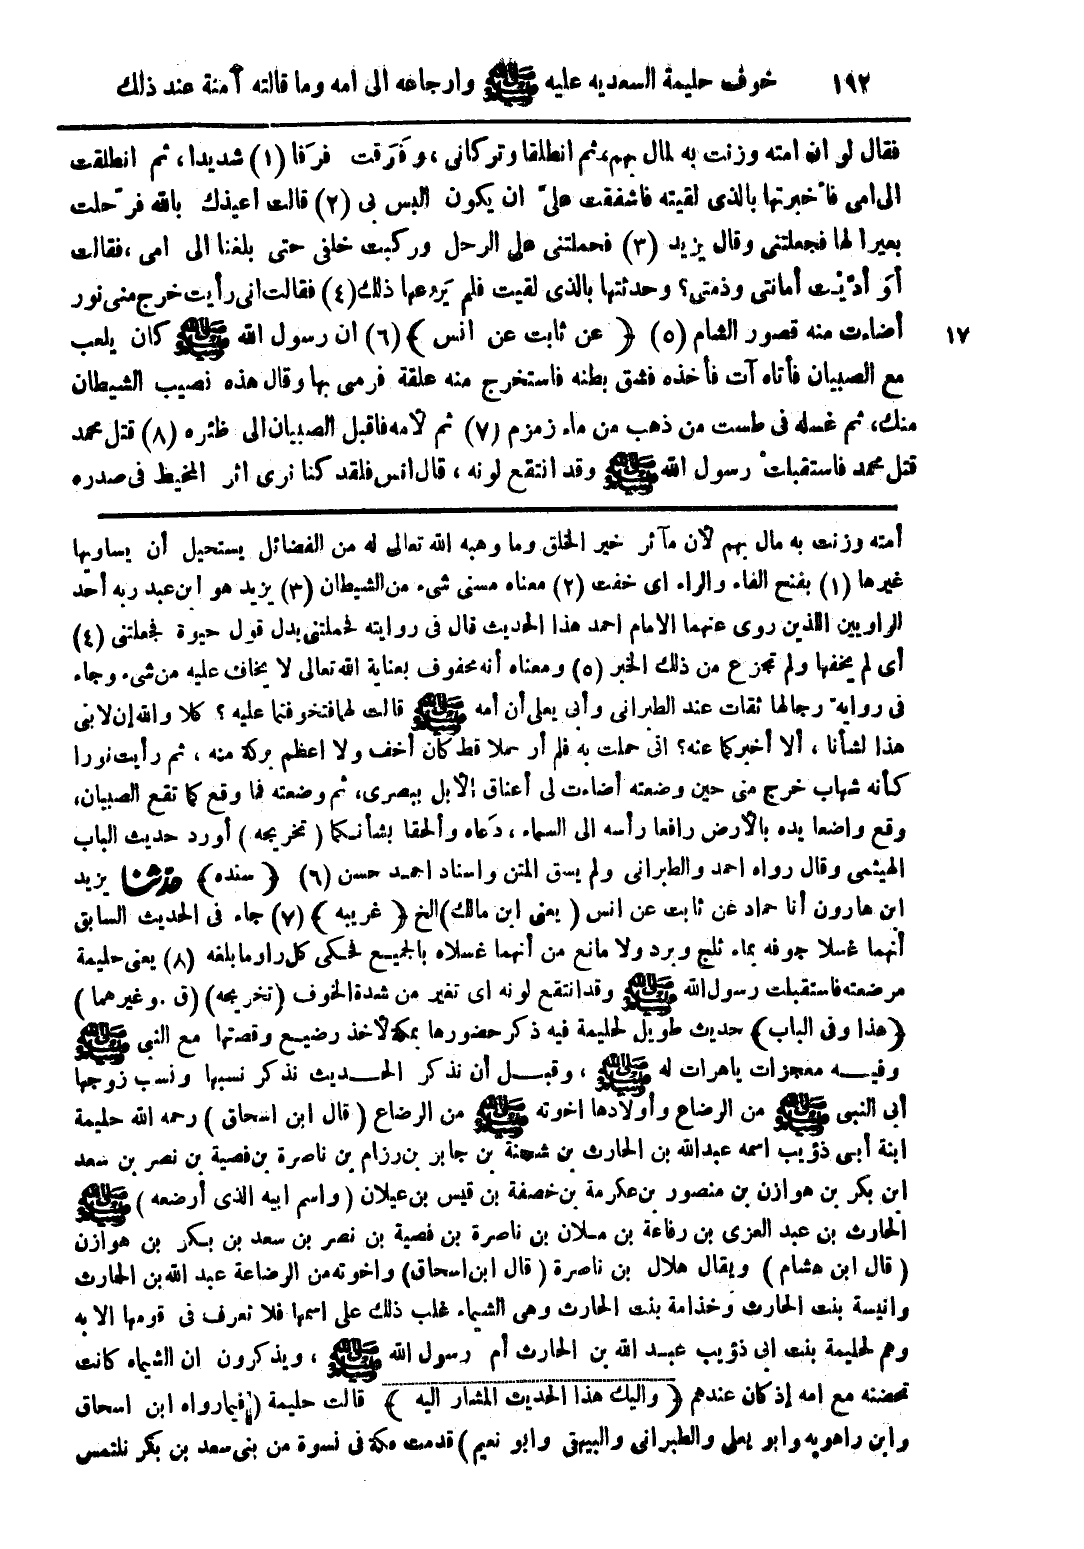 ١٩٢ خوف حليمة السعديه عليه ﷺ وارجاعه الى امه وما قالته آمنة عند ذلك
فقال لو ان امته وزنت به لمال بهم، ثم انطلقا وتركانى ، وفَرَقت فرَقا (١) شديدا ، ثم انطلقت
الى امى فأخبرتها بالذى لقيته فاشفقت علىّ ان يكون البس بى (٢) قالت اعيذك بالله فرحّلت
بعيرا لها فجعلتنى وقال يزيد (٣) فحملتنى على الرحل وركبت خلفى حتى بلغنا الى امى ،فقالت
أوَ أدّيْت أمانتى وذمتى؟ وحدثتها بالذى لقيت فلم يَرُعها ذلك (٤) فقالت انى رأيت خرج منى نور
أضاءت منه قصور الشام (٥) ﴿ عن ثابت عن انس ﴾ (٦) ان رسول الله ﷺ كان يلعب ١٧
مع الصبيان فأتاه آت فأخذه فشق بطنه فاستخرج منه علقة فرمى بها وقال هذه نصيب الشيطان
منك، ثم غسله فى طست من ذهب من ماء زمزم (٧) ثم لأمه فاقبل الصبيان الى ظئره (٨) قتل محمد
قتل محمد فاستقبلتْ رسول الله ﷺ وقد انتقع لونه ، قال انس فلقد كنا نرى اثر المخيط فى صدره
أمته وزنت به مال بهم لأن مآثر خير الخلق وما وهبه الله تعالى له من الفضائل يستحيل أن يساويها
غيرها (١) بفتح الفاء والراء اى خفت (٢) معناه مسنى شىء من الشيطان (٣) يزيد هو ابن عبد ربه أحد
الراويين اللذين روى عنهما الامام احمد هذا الحديث قال فى روايته فحملتنى بدل قول حيوة فجعلتنى (٤)
أى لم يخفها ولم تجزع من ذلك الخبر (٥) ومعناه أنه محفوف بعناية الله تعالى لا يخاف عليه من شىء وجاء
فى رواية رجالها ثقات عند الطبرانى وأبى يعلى أن أمه ﷺ قالت لهما فتخوفتما عليه ؟ كلا والله إن لابنى
هذا لشأنا ، ألا أخبركما عنه؟ انى حملت به فلم أر حملا قط كان أخف ولا اعظم بركة منه ، ثم رأيت نورا
كأنه شهاب خرج منى حين وضعته أضاءت لى أعناق الأبل ببصرى، ثم وضعته فما وقع كما تقع الصبيان،
وقع واضعا يده بالأرض رافعا رأسه الى السماء ، دعاه وألحقا بشأنكما (تخريجه) أورد حديث الباب
الهيثمى وقال رواه احمد والطبرانى ولم يسق المتن واسناد احمد حسن (٦) ﴿ سنده ﴾ حدثنا يزيد
ابن هارون أنا حماد عن ثابت عن انس ( يعنى ابن مالك) الخ ﴿ غريبه ﴾ (٧) جاء فى الحديث السابق
أنهما غسلا جوفه بماء ثلج وبرد ولا مانع من أنهما غسلاه بالجميع فحكى كل راو ما بلغه (٨) يعنى حليمة
مرضعته فاستقبلت رسول الله ﷺ وقد انتقع لونه اى تغير من شدة الخوف (تخريجه) (ق . وغيرهما )
﴿هذا وفى الباب﴾ حديث طويل لحليمة فيه ذكر حضورها بمكة لأخذ رضيع وقصتها مع النبى ﷺ
وفيه معجزات باهرات له ﷺ ، وقبل أن نذكر الحديث نذكر نسبها ونسب زوجها
أبى النبى ﷺ من الرضاع وأولادها اخوته ﷺ من الرضاع ( قال ابن اسحاق ) رحمه الله حليمة
ابنة أبى ذؤيب اسمه عبدالله بن الحارث بن شجنة بن جابر بن رزام بن ناصرة بن فصية بن نصر بن سعد
ابن بكر بن هوازن بن منصور بن عكرمة بن خصفة بن قيس بن عيلان ( واسم ابيه الذى أرضعه ) ﷺ
الحارث بن عبد العزى بن رفاعة بن ملان بن ناصرة بن فصية بن نصر بن سعد بن بكر بن هوازن
( قال ابن هشام ) ويقال هلال بن ناصرة ( قال ابن اسحاق) واخوته من الرضاعة عبد الله بن الحارث
وانيسة بنت الحارث وخذامة بنت الحارث وهى الشيماء غلب ذلك على اسمها فلا تعرف فى قومها الا به
وهم لحليمة بنت ابى ذؤيب عبد الله بن الحارث أم رسول الله ﷺ ، ويذكرون ان الشيماء كانت
تحضنه مع امه إذ كان عندهم ﴿ واليك هذا الحديث المشار اليه ﴾ قالت حليمة ( فيما رواه ابن اسحاق
وابن راهويه وابو يعلى والطبرانى والبيهقى وابو نعيم ) قدمت مكة فى نسوة من بنى سعد بن بكر نلتمس